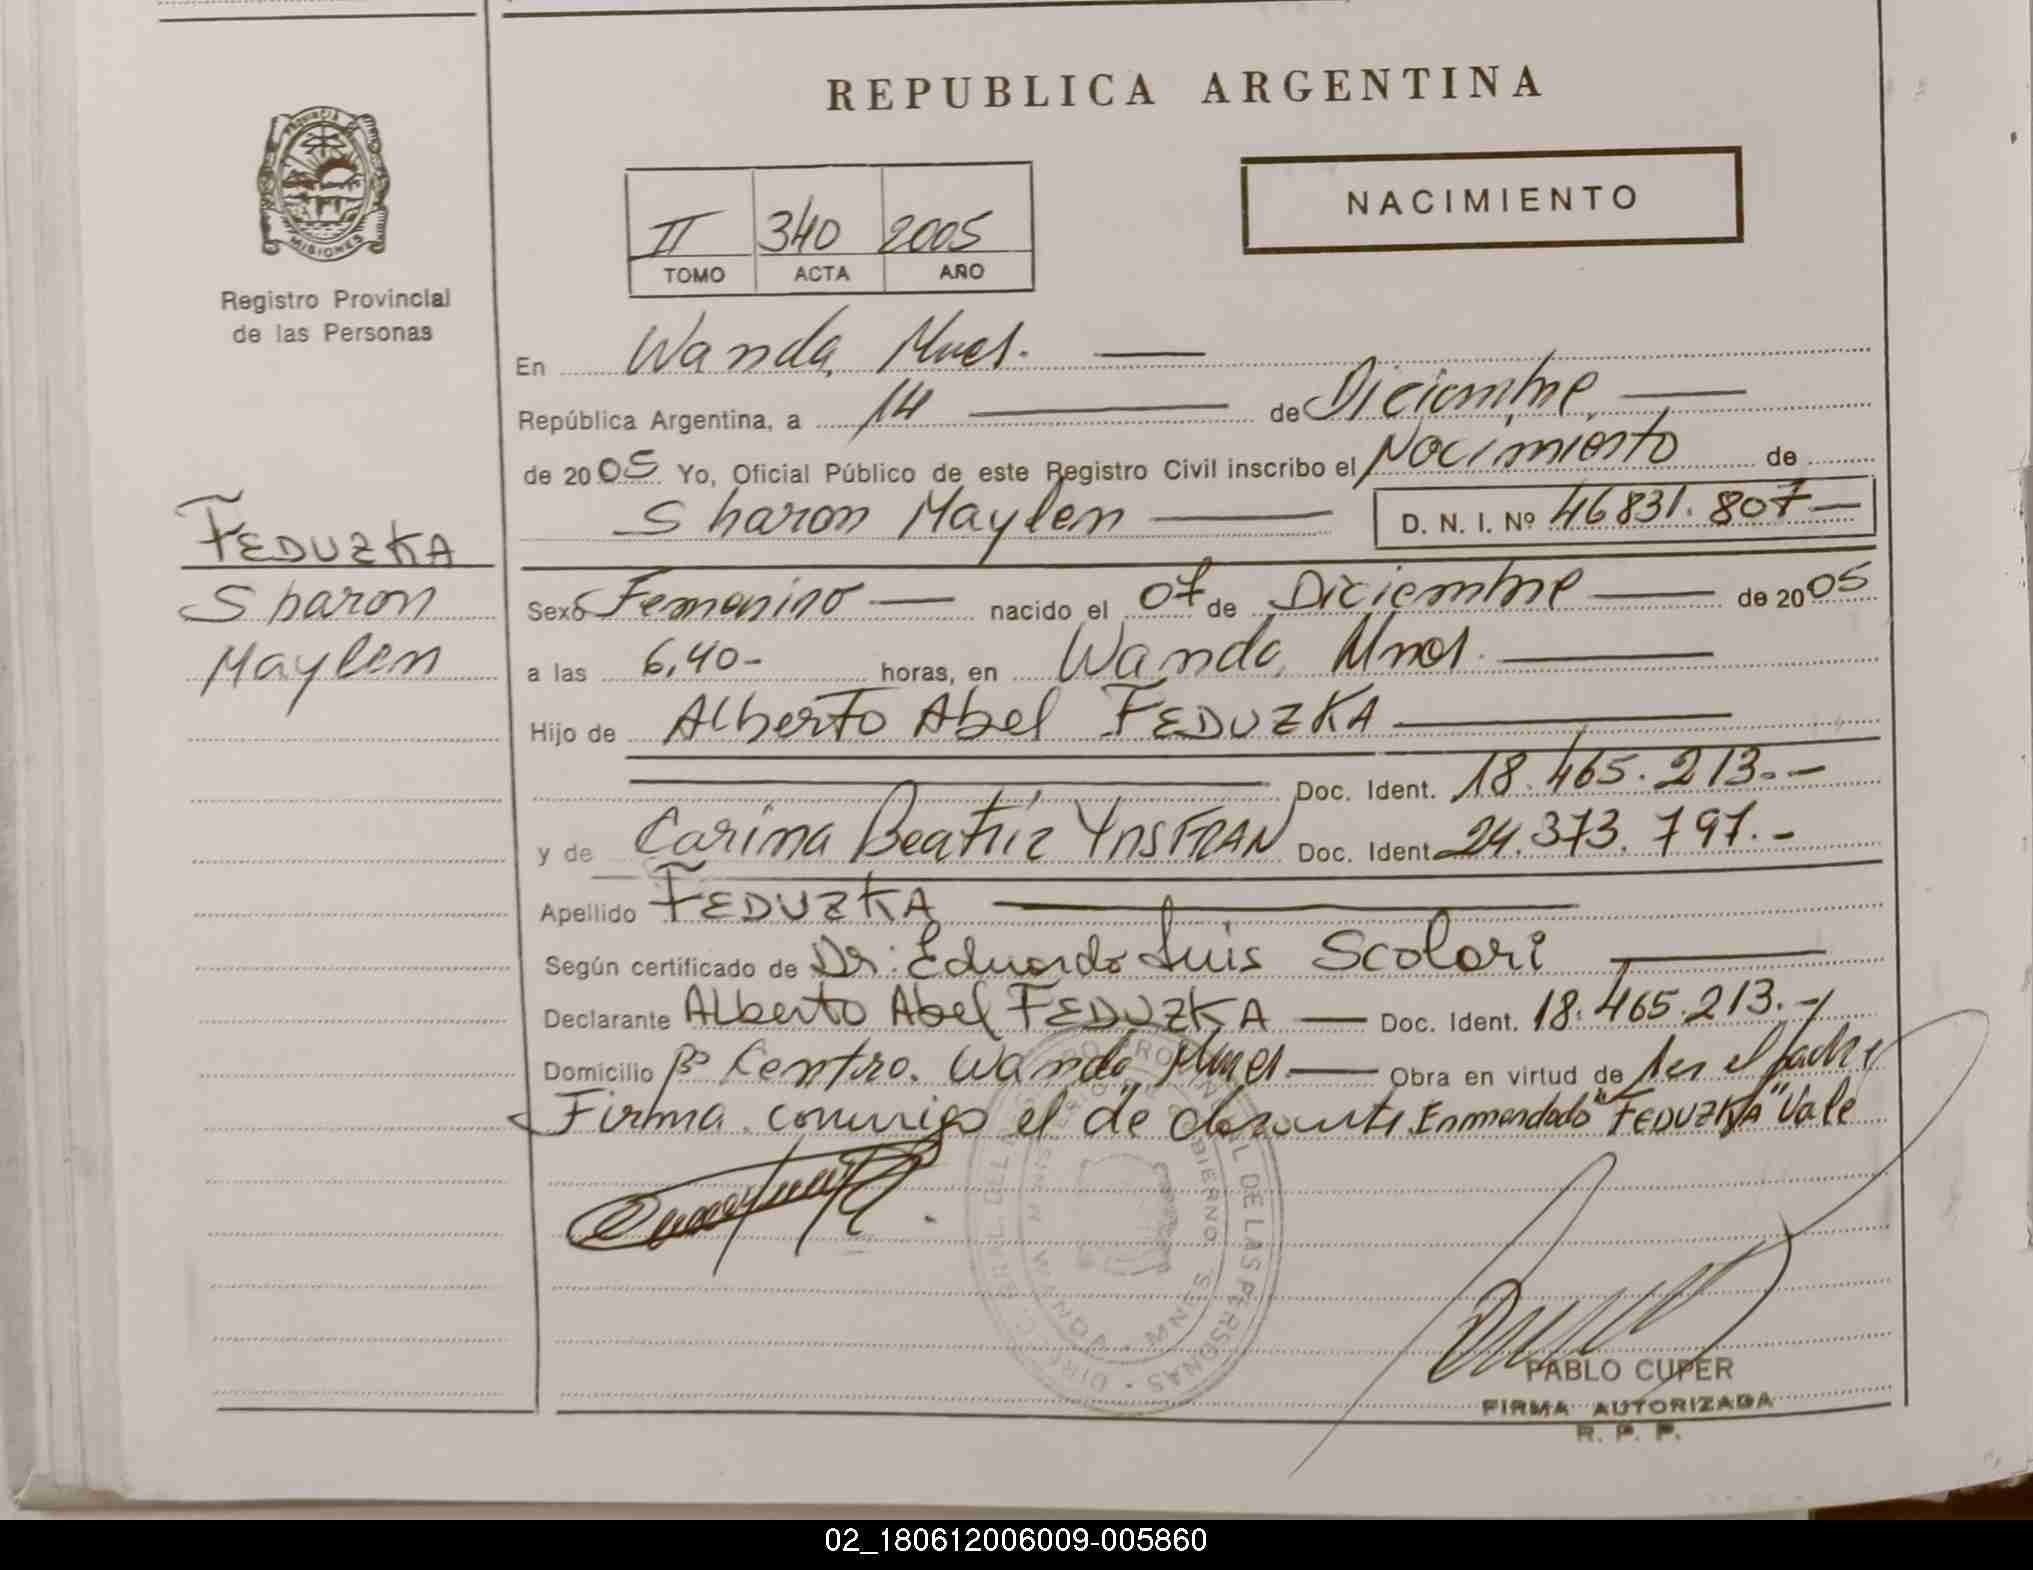 REPUBLICA ARGENTINA
NACIMIENTO
II 340 2005
TOMO ACTA AÑO
PROVINCIA DE
MISIONES
Registro Provincial
de las Personas
En Wanda, Mnes.
República Argentina, a 14 de Diciembre
de 2005 Yo, Oficial Público de este Registro Civil inscribo el Nacimiento de
Sharon Maylen D. N. I. Nº 46831.807
FEDUZKA
Sharon
Maylen
Sexo Femenino nacido el 07 de Diciembre de 2005
a las 6,40- horas, en Wanda, Mnes.
Hijo de Alberto Abel FEDUZKA
Doc. Ident. 18.465.213.-
y de Carina Beatriz YNSFRAN Doc. Ident. 24.373.797.-
Apellido FEDUZKA
Según certificado de Dr. Eduardo Luis Scolari
Declarante Alberto Abel FEDUZKA Doc. Ident. 18.465.213.-
Domicilio Bº Centro. Wanda, Mnes. Obra en virtud de ser el padre
Firma conmigo el declarante. Enmendado "FEDUZKA" Vale
WANDA - MNES
DE LAS PERSONAS
PABLO CUPER
FIRMA AUTORIZADA
R. P. P.
02_180612006009-005860